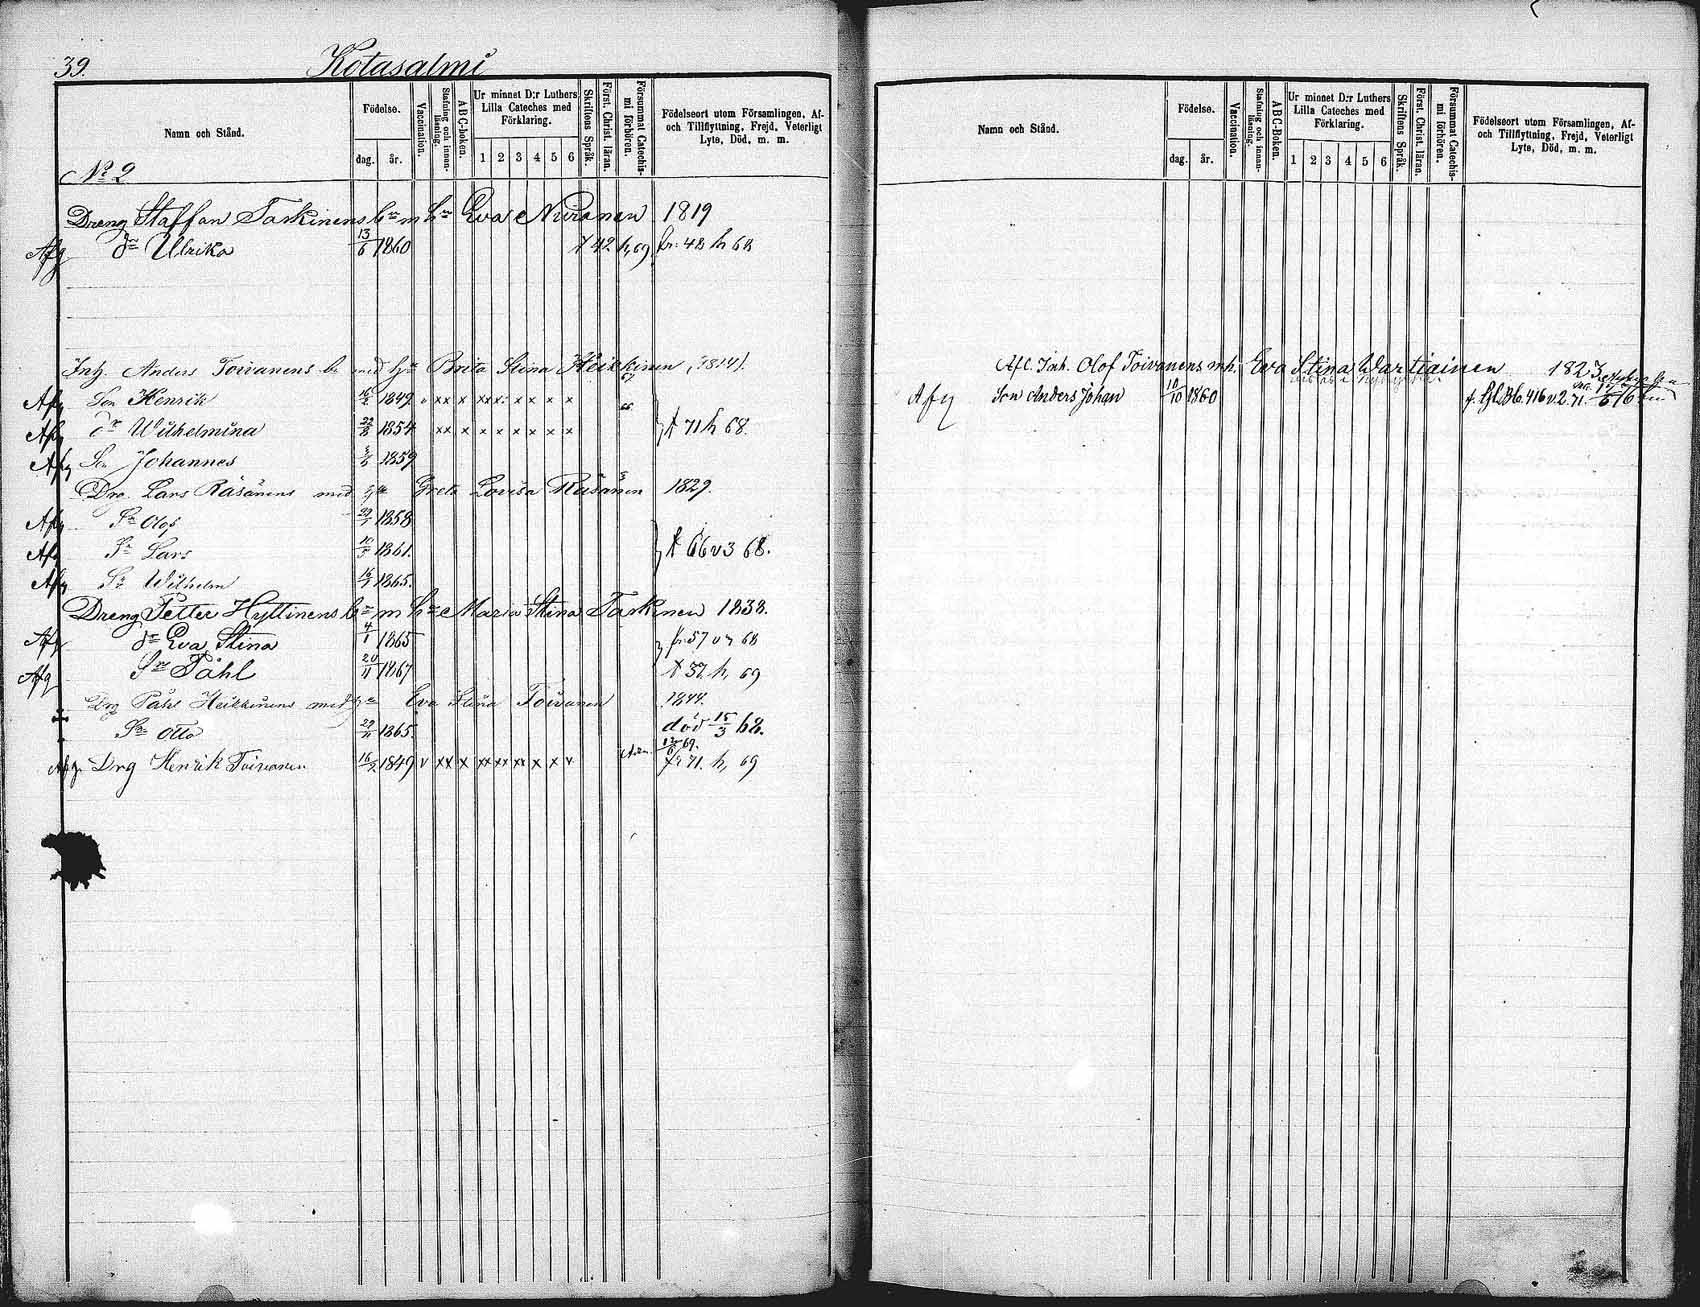 39.
Kotasalmi
Namn och Stånd.
Födelse.
dag. år.
Vaccination.
Stafning och innanläsning.
ABC-boken.
Ur minnet D:r Luthers Lilla Cateches med Förklaring.
1 2 3 4 5 6
Skriftens Språk.
Först. Christ. läran.
Försummat Catechismi förhören.
Födelseort utom Församlingen, Af- och Tillflyttning, Frejd, Veterligt Lyte, Död, m. m.
No 2
Dreng Staffan Taskinens bn m hn Eva Nuranen 1819
Afg dr Ulrika 13/6 1860 742 h, 69 fr. 48 h 68
Inh. Anders Toivanens bn med hn Brita Stina Heikkinen (1814).
67
Afg Son Henrik 16/2 1849 v xx x xxx x x x x
66
Afg dr Wilhelmina 22/8 1854 xx x x x x x x x } fr 71 h 68
Afg Son Johannes 1859
Drg. Lars Räsänens med hn Greta Lovisa Räsänen 1829.
Afg Sn Olof 1858
Afg Sn Lars 1861. } fr 66 v 3 68.
Afg Sn Wilhelm 16/1 1865.
Dreng Petter Hyttinens bn m hn Maria Stina Taskinen 1838.
Afg dr Eva Stina 4/1 1865 } fr. 57 v 68
Afg Sn Påhl 20/11 1867 fr 57. h, 69
Drg Påhl Heikkinens med hn Eva Stina Toivanen 1844.
Sn Otto 29/11 1865. död 15/3 68.
12/6 69.
Afg. Drg Henrik Toivanen 16/2 1849 v xx x xx xx xx x x v fr 71. h, 69
Namn och Stånd.
Födelse.
dag. år.
Vaccination.
Stafning och innanläsning.
ABC-Boken.
Ur minnet D:r Luthers Lilla Cateches med Förklaring.
1 2 3 4 5 6
Skriftens Språk.
Först. Christ. läran.
Försummat Catechismi förhören.
Födelseort utom Församlingen, Af- och Tillflyttning, Frejd, Veterligt Lyte, Död, m. m.
Afl. Inh. Olof Toivanens m h. Eva Stina Wartiainen 1823
Afg Son Anders Johan 10/10 1860 f. Gl. Bb. 416 v. 2. 71.